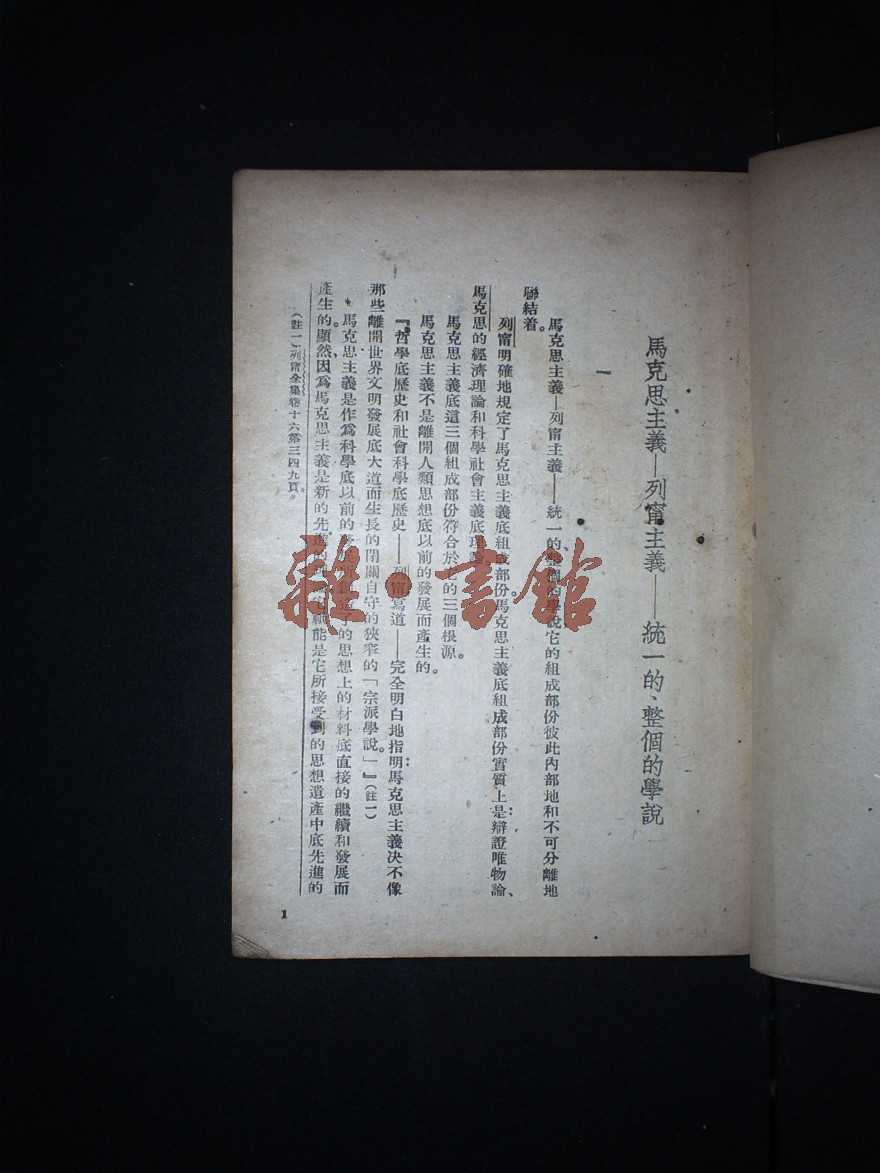 馬克思主義—列甯主義——統一的、整個的學說
一
馬克思主義—列甯主義——統一的、整個的學說它的組成部份彼此內部地和不可分離地
聯結着。
列甯明確地規定了馬克思主義底組成部份。馬克思主義底組成部份實質上是：辯證唯物論、
馬克思的經濟理論和科學社會主義底理論。
馬克思主義底這三個組成部份符合於它的三個根源。
馬克思主義不是離開人類思想底以前的發展而產生的。
『哲學底歷史和社會科學底歷史——列甯寫道——完全明白地指明：馬克思主義決不像
那些離開世界文明發展底大道而生長的閉關自守的狹窄的「宗派學說。」』（註一）
馬克思主義是作爲科學底以前的發展所創造了的思想上的材料底直接的繼續和發展而
產生的。顯然，因爲馬克思主義是新的先進的，能是它所接受到的思想遺產中底先進的
（註一）列甯全集卷十六第三四九頁。
1
雜·書館